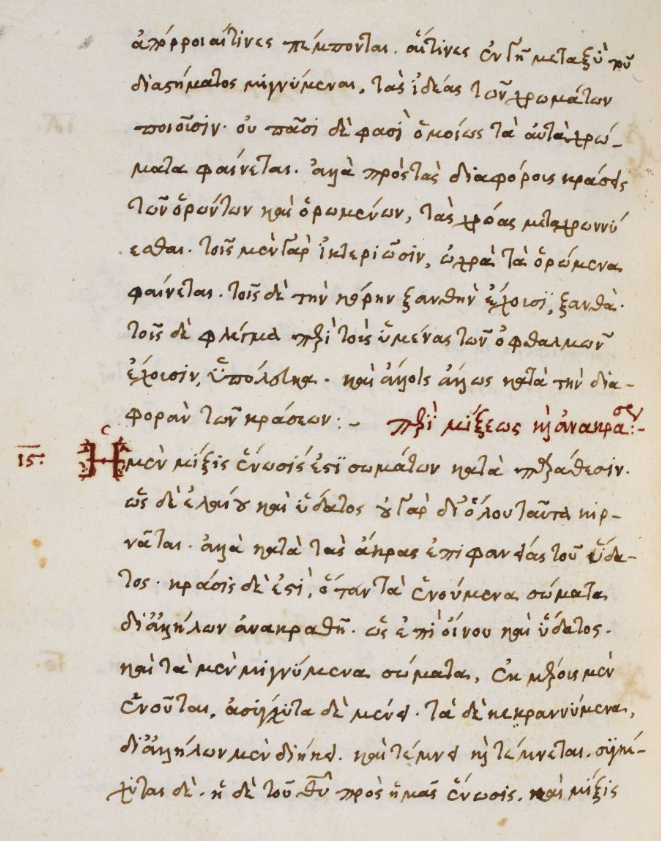 ἀπόρροιαί τινες πέμπονται. αἵτινες ἐν τῇ μεταξὺ τοῦ
διαστήματος μιγνύμεναι, τὰς ἰδέας τῶν χρωμάτων
ποιοῦσιν· οὐ πᾶσι δὲ φασὶ ὁμοίως τὰ αὐτὰ χρώ-
ματα φαίνεται. ἀλλὰ πρὸς τὰς διαφόροις κράσεις
τῶν ὁρώντων καὶ ὁρωμένων, τὰς χρόας μεταχρωννύ
εσθαι. τοῖς μὲν γὰρ ἰκτεριῶσιν, ὠχρὰ τὰ ὁρώμενα
φαίνεται. τοῖς δὲ τὴν κόρην ξανθὴν ἔχουσι, ξανθὰ.
τοῖς δὲ φλέγμα περὶ τοὺς ὑμένας τῶν ὀφθαλμῶν
ἔχουσιν, ὑπόλευκα. καὶ ἄλλοις ἄλλως κατὰ τὴν δια-
φορὰν τῶν κράσεων :- περὶ μίξεως κ(αὶ) ἀνακράσεως :-
ιϛ: Ἡ μὲν μίξις ἕνωσίς ἐστι σωμάτων κατὰ παράθεσιν.
ὡς δὲ ἐλαίου καὶ ὕδατος οὐ γὰρ δι' ὅλου ταῦτα κιρ-
νᾶται. ἀλλὰ κατὰ τὰς ἄκρας ἐπιφανείας τοῦ ὕδα-
τος. κράσις δὲ ἐστὶ, ὅταν τὰ ἑνούμενα σώματα
δι' ἀλλήλων ἀνακραθῇ. ὡς ἐπὶ οἴνου καὶ ὕδατος.
καὶ τὰ μὲν μιγνύμενα σώματα, ἐκ μέρους μὲν
ἑνοῦται, ἀσύγχυτα δὲ μένει. τὰ δὲ κεκραννύμενα,
δι' ἀλλήλων μὲν διήκει. καὶ τέμνει κ(αὶ) τέμνεται. συγκέ-
χυται δὲ. ἡ δὲ τοῦ θ̅υ̅ πρὸς ἡμᾶς ἕνωσις. καὶ μίξις